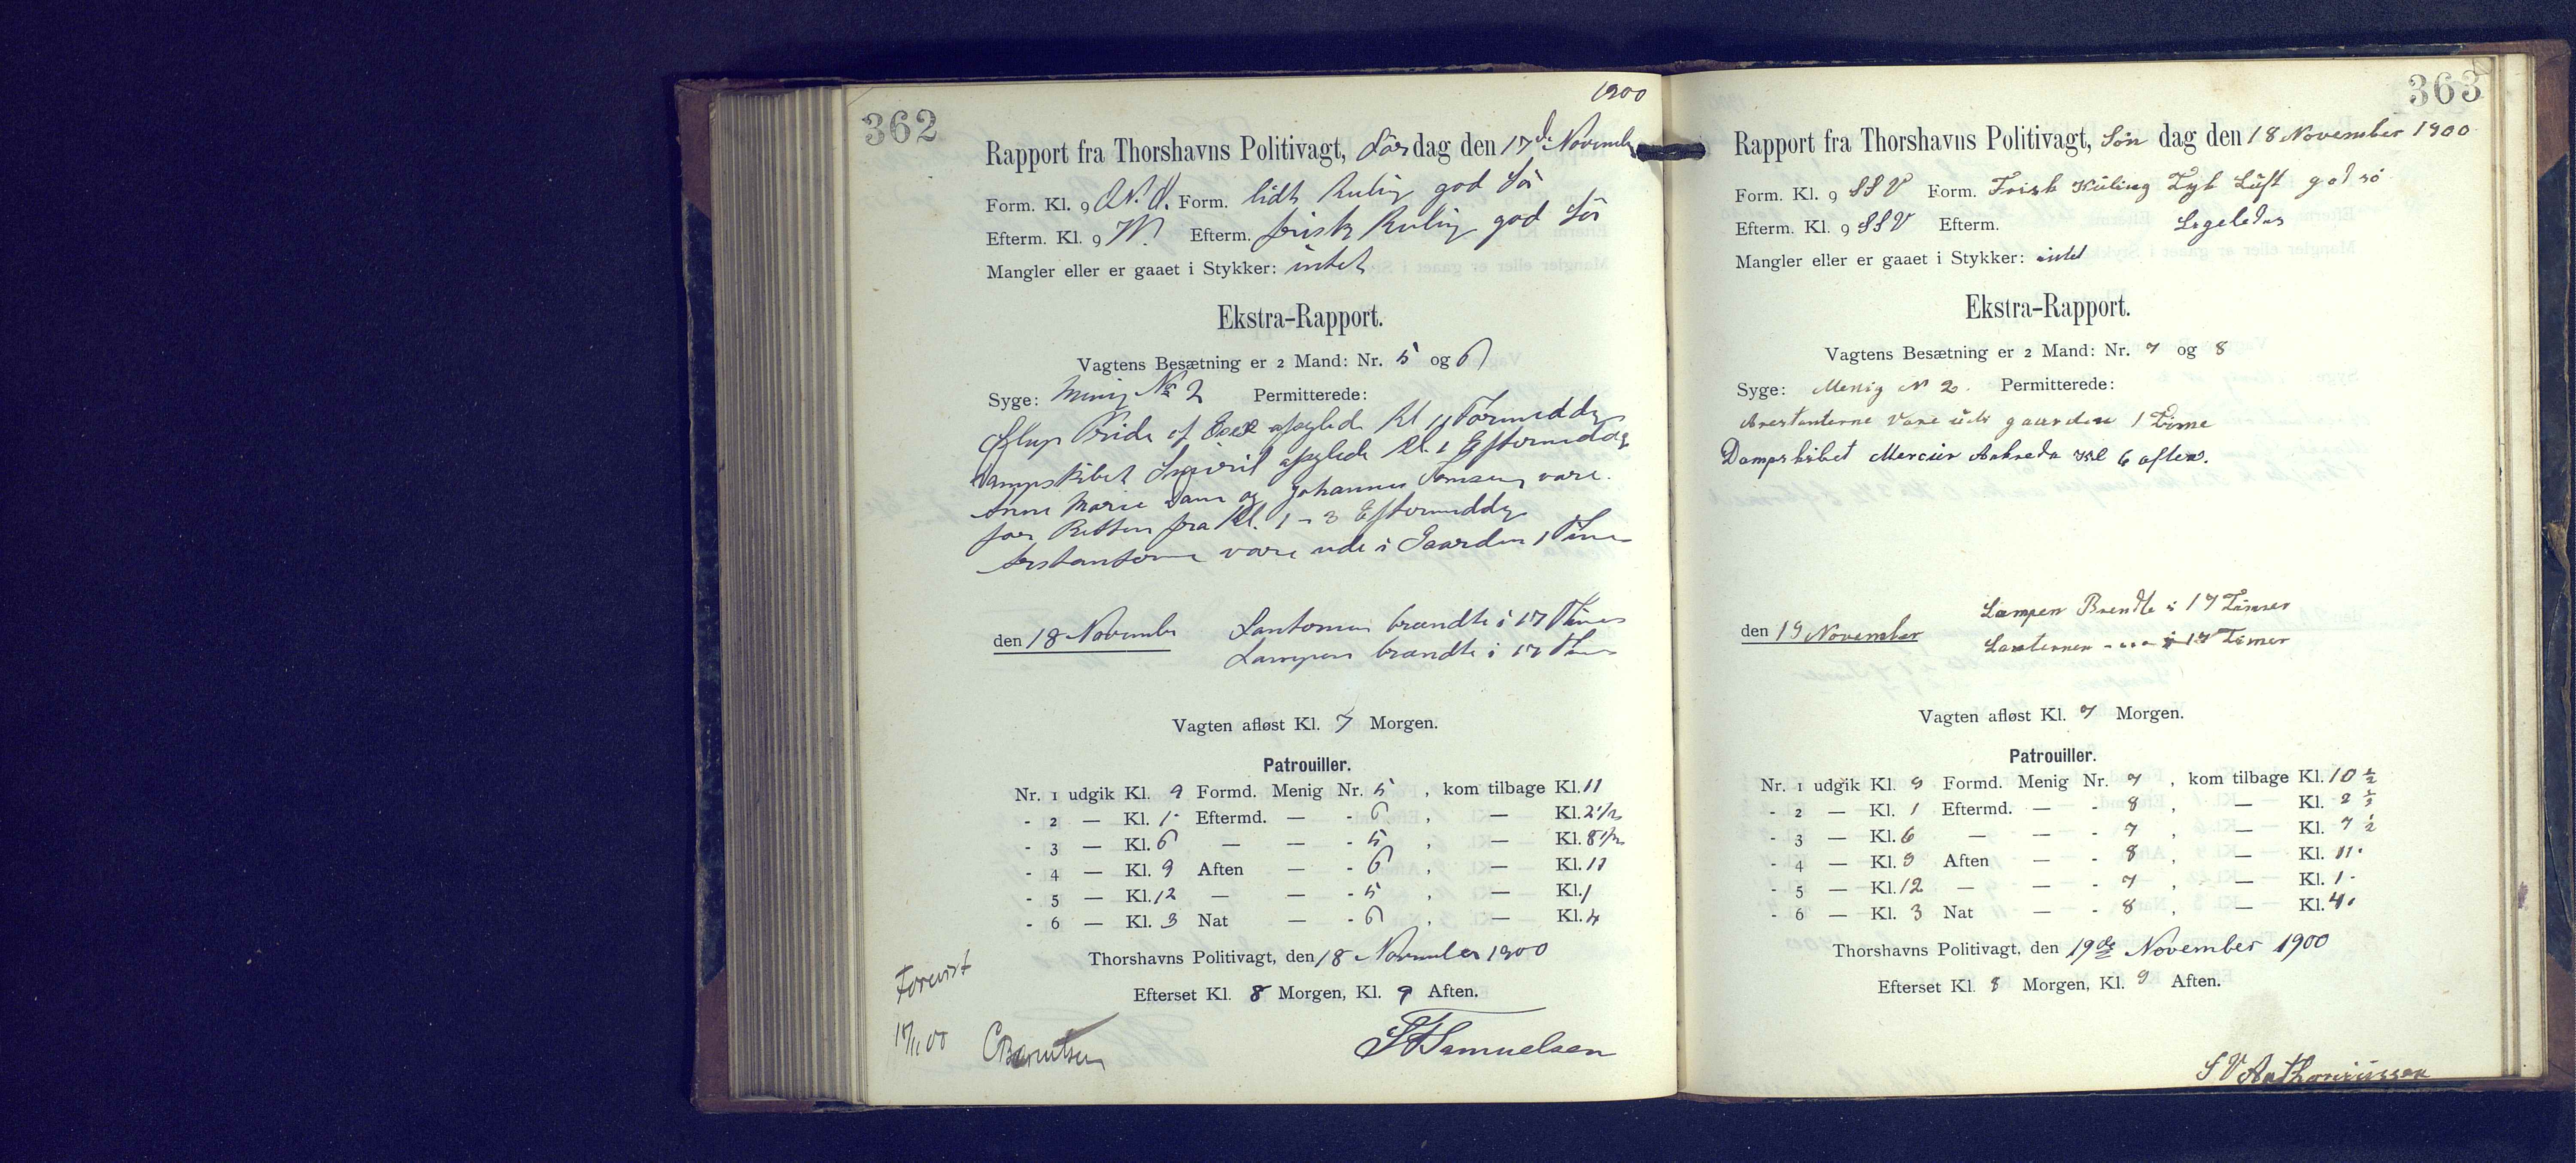 362
1900
Rapport fra Thorshavns Politivagt, Lördag den 17de November
Form. Kl. 9 Form. lidt Kuling god Sö
Efterm. Kl. 9 W. Efterm. frisk Kuling god Sö
Mangler eller er gaaet i Stykker: intet
Ekstra-Rapport.
Vagtens Besætning er 2 Mand: Nr. 5 og 6
Syge: Menig No 2 Permitterede:
Slup Pride of afseglede Kl 11 Formiddag
Dampskibet afseglede Kl. 1 Eftermiddag
Anne Marie Dam og Johannes Tomsen vare
for Retten fra Kl. 1 - 3 Eftermiddag
Arstanterne vare ude i Gaarden 1 Time
den 18 November Lanternen brændte i 17 Timer
Lampen brændte i 17 Timer
Vagten afløst Kl. 7 Morgen.
Patrouiller.
Nr. 1 udgik Kl. 9 Formd. Menig Nr. 5 , kom tilbage Kl. 11
- 2 — Kl. 1 Eftermd. — - 6 , — Kl. 2 1/2
- 3 — Kl. 6 — — - 5 , — Kl. 8 1/2
- 4 — Kl. 9 Aften — - 6 , — Kl. 11
- 5 — Kl. 12 — — - 5 , — Kl. 1
- 6 — Kl. 3 Nat — - 6 , — Kl. 4
Thorshavns Politivagt, den 18 November 1900
Efterset Kl. 8 Morgen, Kl. 9 Aften.
Forevist
18/11 00 CBærentsen
Samuelsen
363
Rapport fra Thorshavns Politivagt, Søn dag den 18 November 1900
Form. Kl. 9 SSV Form. Frisk Küling Tyk Lüft god sö
Efterm. Kl. 9 SSV Efterm. Ligeledes
Mangler eller er gaaet i Stykker: intet
Ekstra-Rapport.
Vagtens Besætning er 2 Mand: Nr. 7 og 8
Syge: Menig N 2. Permitterede:
Arestanterne Vare üde i gaarden 1 Time
Dampskibet Mercür Ankreda Kl 6 aften.
den 19 November Lampen Brendte i 17 Timer
Lanternen - i 17 Timer
Vagten afløst Kl. 7 Morgen.
Patrouiller.
Nr. 1 udgik Kl. 9 Formd. Menig Nr. 7 , kom tilbage Kl. 10 1/2
- 2 — Kl. 1 Eftermd. — - 8 , — Kl. 2 1/2
- 3 — Kl. 6 — — - 7 , — Kl. 7 1/2
- 4 — Kl. 9 Aften — - 8 , — Kl. 11.
- 5 — Kl. 12 — — - 7 , — Kl. 1 -
- 6 — Kl. 3 Nat — - 8 , — Kl. 4.
Thorshavns Politivagt, den 19de November 1900
Efterset Kl. 8 Morgen, Kl. 9 Aften.
S V Anthoniüssen